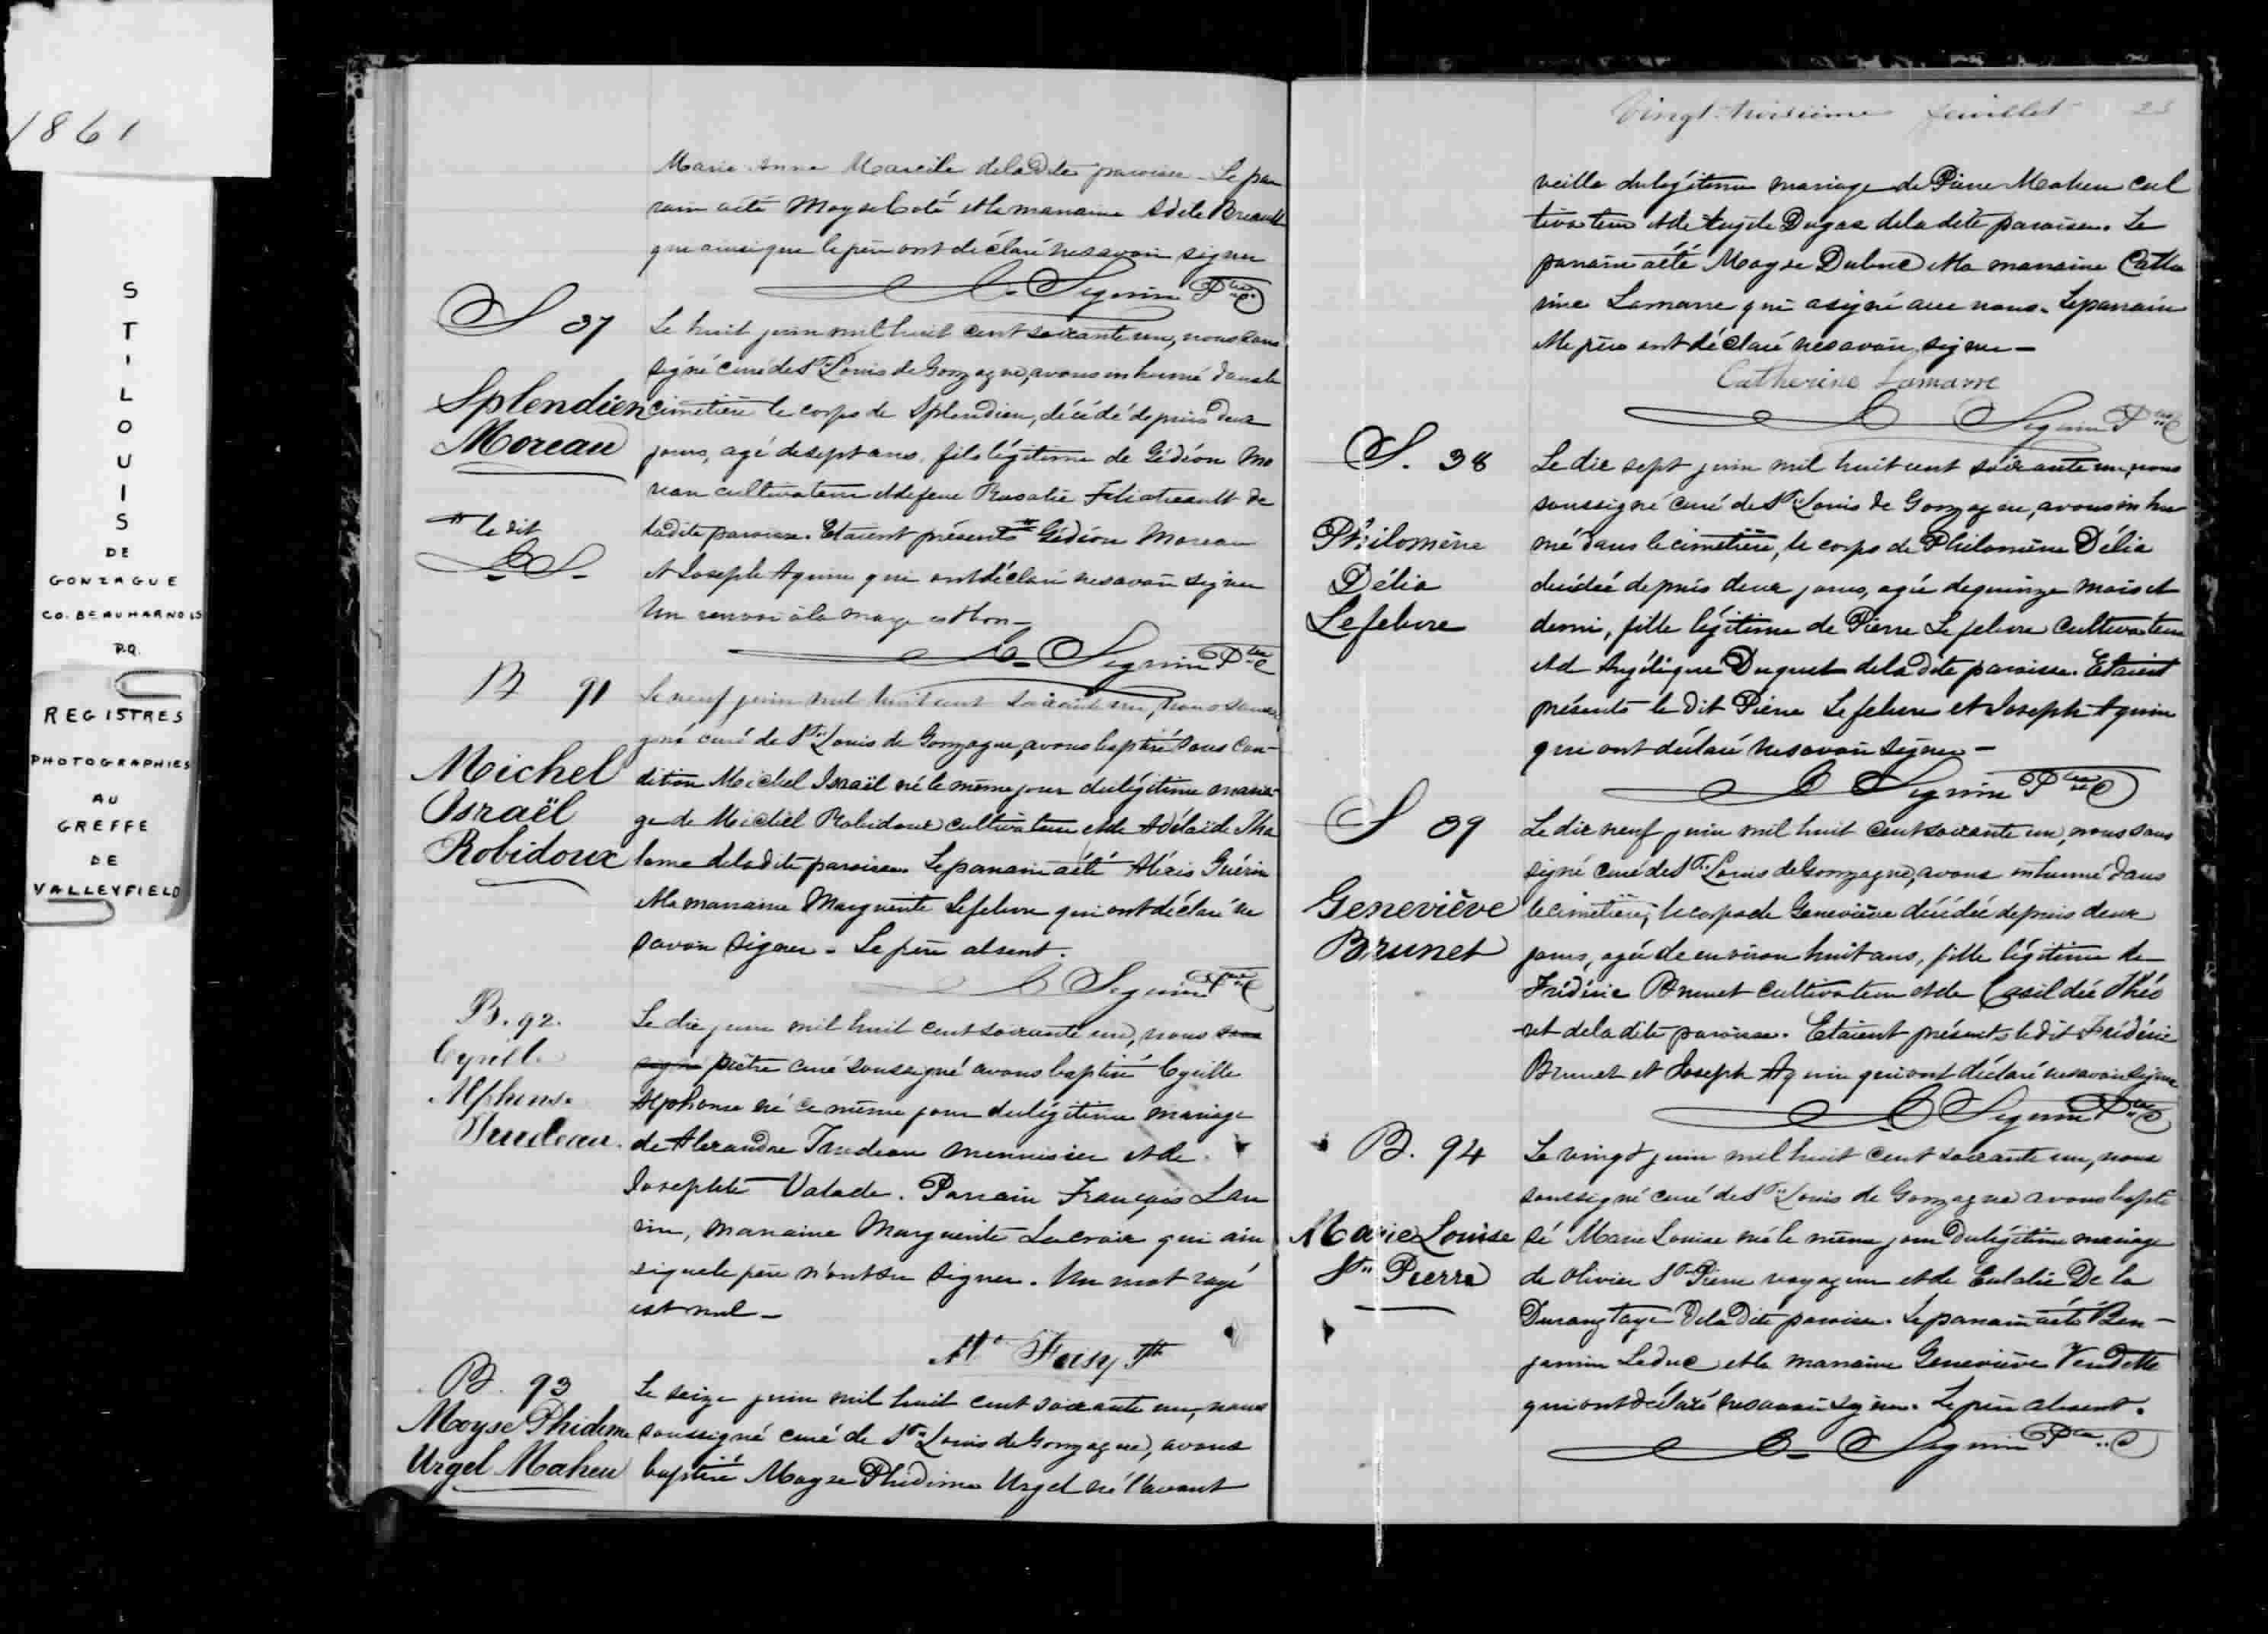 1861
ST. LOUIS
DE
GONZAGUE
CO. BEAUHARNOIS
P.Q.
REGISTRES
PHOTOGRAPHIES
AU
GREFFE
DE
VALLEYFIELD
Marie Anne Marcile de la dite paroisse. Le par
rain a été Moyse Coté et la marraine Adele Breault
qui ainsi que le père ont déclaré ne savoir signer
Seguin Ptre
S 37
Splendien
Moreau
le dit
Le huit juin mil huit cent soixante un, nous sous
signé curé de St Louis de Gonzague, avons inhumé dans le
cimetière le corps de Splendien, décédé depuis deux
jours, agé de sept ans, fils légitime de Gédéon Mo
reau cultivateur et de feue Rosalie Filiatreault de
ladite paroisse. Etaient présents Gédéon Moreau
et Joseph Aquin qui ont déclaré ne savoir signer
Un renvoi à la marge est bon
Seguin Ptre
B 91
Michel
Israël
Robidoux
Le neuf juin mil huit cent soixante un, nous sous
signé curé de St Louis de Gonzague, avons baptisé sous con-
dition Michel Israël né le même jour du légitime maria-
ge de Michel Robidoux cultivateur et de Adélaïde
de la dite paroisse. Le parrain a été Aléxis Guérin
et la marraine Marguerite Lefebvre qui ont déclaré ne
savoir signer. Le père absent.
Seguin Ptre
B. 92.
Cyrille
Alphonse
Trudeau.
Le dix juin mil huit cent soixante un, nous sous
signé prêtre curé soussigné avons baptisé Cyrille
Alphonse né ce même jour du légitime mariage
de Alexandre Trudeau mennisier et de
Josephte Valade. Parrain François Lau
rin, marraine Marguerite Lacroix qui ain
si que le père n'ont su signer. Un mot rayé
est nul
B. 93
Moyse Phidime
Urgel Maheu
Le seize juin mil huit cent soixante un, nous
soussigné curé de St Louis de Gonzague, avons
baptisé Moyse Phidime Urgel né l'avant
Vingt-troisième feuillet 23
veille du légitime mariage de Pierre Maheu cul
tivateur et de Angele Dugas de la dite paroisse. Le
parrain a été Moyse Dubuc et la marraine Cathe
rine Lamarre qui a signé avec nous. Le parrain
et le père ont déclaré ne savoir signer
Catherine Lamarre
Seguin Ptre
S. 38
Philomène
Délia
Lefebvre
Le dix sept juin mil huit cent soixante un, nous
soussigné curé de St Louis de Gonzague, avons inhu
mé dans le cimetière, le corps de Philomène Délia
décédée depuis deux jours, agée de quinze mois et
demi, fille légitime de Pierre Lefebvre cultivateur
et d'Angélique Duquet de la dite paroisse. Etaient
présents le dit Pierre Lefebvre et Joseph Aquin
qui ont déclaré ne savoir signer
Seguin Ptre
S 39
Geneviève
Brunet
Le dix neuf juin mil huit cent soixante un, nous sous
signé curé de St Louis de Gonzague, avons inhumé dans
le cimetière, le corps de Geneviève décédée depuis deux
jours, agée de environ huit ans, fille légitime de
Frédéric Brunet cultivateur et de Casildée Théo
ret de la dite paroisse. Etaient présents le dit Frédéric
Brunet et Joseph Aquin qui ont déclaré ne savoir signer
Seguin Ptre
B. 94
Marie Louise
St Pierre
Le vingt juin mil huit cent soixante un, nous
soussigné curé de St Louis de Gonzague avons bapti
sé Marie Louise née le même jour du légitime mariage
de Olivier St Pierre voyageur et de Eulalie De la
Durangtaye de la dite paroisse. Le parrain a été Ben-
jamin Leduc et la marraine Geneviève Vendette
qui ont déclaré ne savoir signer. Le père absent.
Seguin Ptre